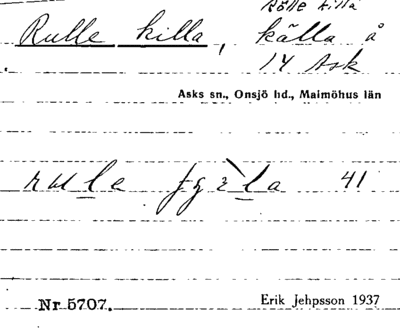 Rölle killa
Rulle killa, källa å
14 Ask
Asks sn., Onsjö hd., Malmöhus län
41
Nr 5707.
Erik Jehpsson 1937